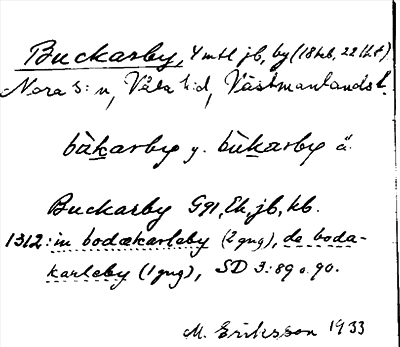 Buckarby, 4 mtl jb, by (18 hb, 22 lht)
Nora s:n, Våla h:d, Västmanlands l.
bàkarby y. bùkarby ä.
Buckarby G91, Ek, jb, kb.
1312: in bodækarleby (2 gng), de boda-
karleby (1 gng), SD 3:89 o. 90.
M. Eriksson 1933